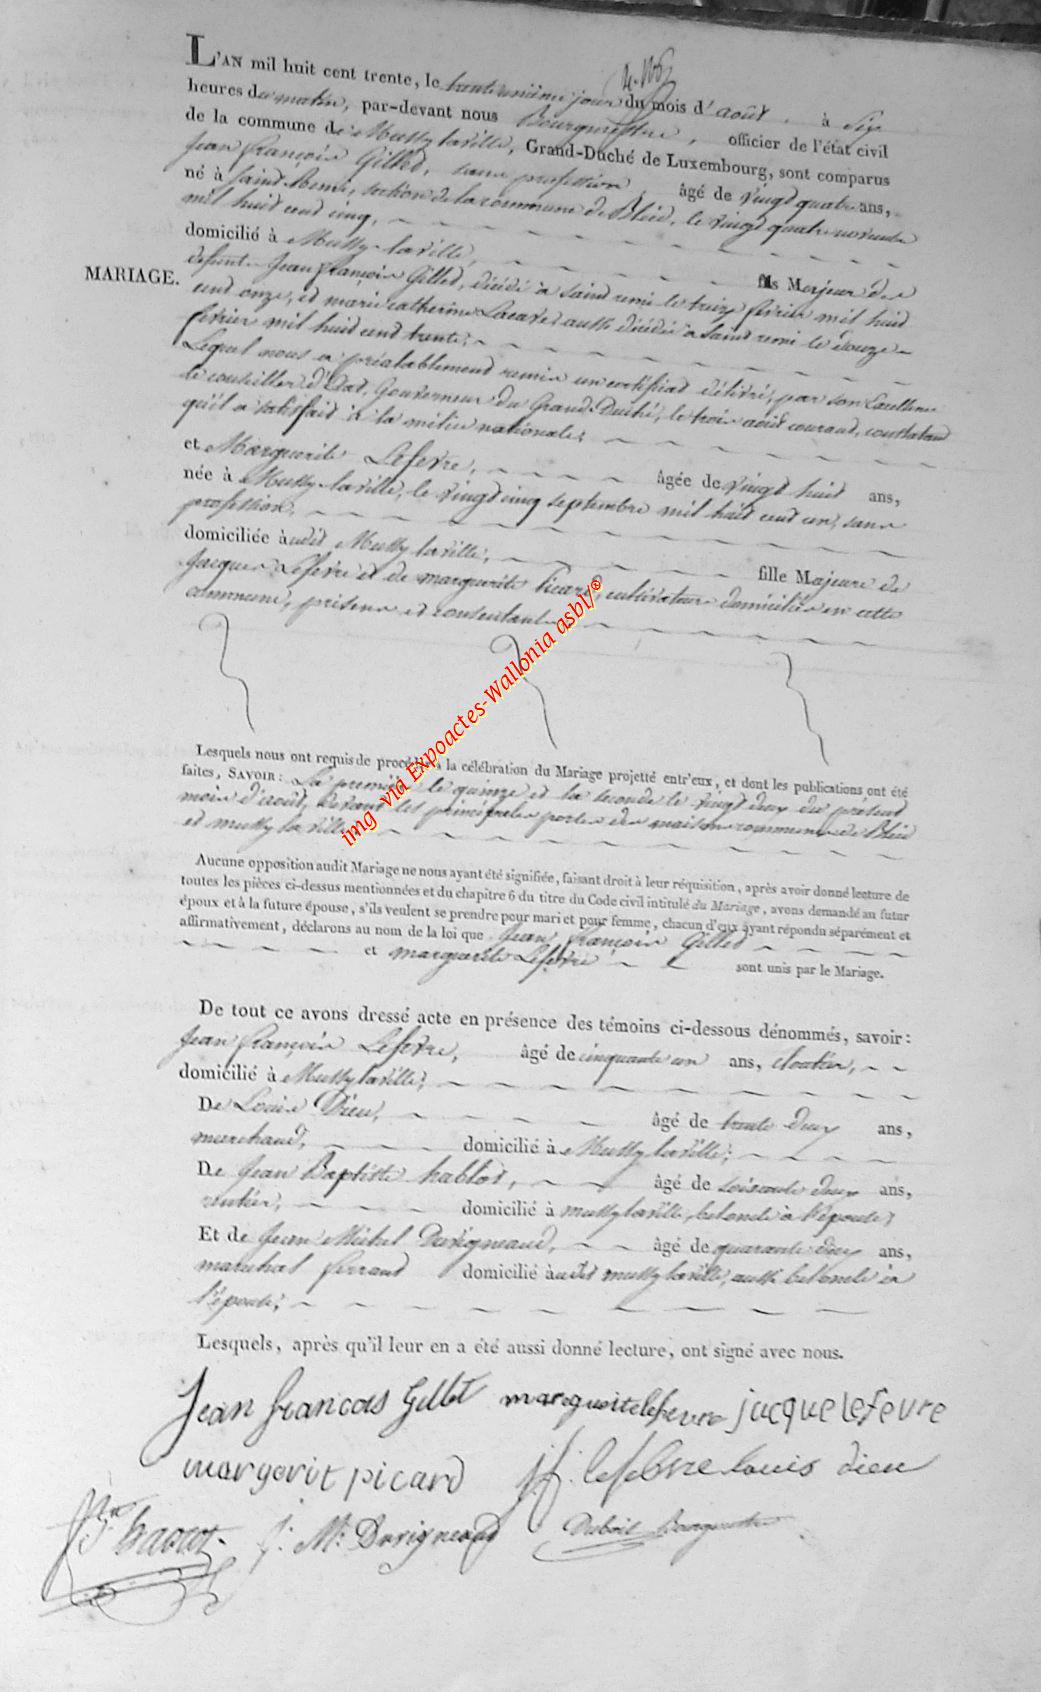 L'AN mil huit cent trente, le trente unième jour du mois d'août, à six
heures du matin, par-devant nous Bourgmestre, officier de l'état civil
de la commune de Mussy laville, Grand-Duché de Luxembourg, sont comparus
Jean françois Gillet, sans profession, âgé de vingt quatre ans,
né à Saint-Remi, section de la commune de Bleid, le vingt quatre novembre
mil huit cent cinq,
domicilié à Mussy-laville, fils Majeur des
MARIAGE.
défunts Jean françois Gillet, décédé à Saint remi le treize février mil huit
cent onze, et marie catherine Lacave, aussi décédée à Saint remi le douze
février mil huit cent trente;
Lequel nous a préalablement remis un certificat délivré, par son Excellence
le conseiller d'Etat, Gouverneur du Grand-Duché, le trois août courant, constatant
qu'il a satisfait à la milice nationale;
et Marguerite Lefevre, âgée de vingt huit ans,
née à Mussy-laville, le vingt cinq septembre mil huit cent un, sans
profession,
domiciliée audit Mussy laville, fille Majeure de
Jacques Lefevre et de marguerite Picard, cultivateurs domiciliés en cette
commune, présens et consentant
Lesquels nous ont requis de procéder à la célébration du Mariage projetté entr'eux, et dont les publications ont été
faites, SAVOIR: La première le quinze et la seconde le vingt deux du présent
mois d'août, devant les principales portes des maisons communes de Bleid
et mussy la ville
Aucune opposition audit Mariage ne nous ayant été signifiée, faisant droit à leur réquisition, après avoir donné lecture de
toutes les pièces ci-dessus mentionnées et du chapitre 6 du titre du Code civil intitulé du Mariage, avons demandé au futur
époux et à la future épouse, s'ils veulent se prendre pour mari et pour femme, chacun d'eux ayant répondu séparément et
affirmativement, déclarons au nom de la loi que Jean françois Gillet
et marguerite Lefevre sont unis par le Mariage.
De tout ce avons dressé acte en présence des témoins ci-dessous dénommés, savoir:
Jean françois Lefevre, âgé de cinquante un ans, cloutier,
domicilié à Mussy laville;
De Louis Dieu, âgé de trente deux ans,
marchand, domicilié à Mussy laville;
De Jean Baptiste hablot, âgé de soixante deux ans,
rentier, domicilié à mussy laville, bel oncle à l'épouse;
Et de Jean Michel Duvigneaud, âgé de quarante deux ans,
maréchal ferrant domicilié audit mussy laville, aussi bel oncle à
l'épouse;
Lesquels, après qu'il leur en a été aussi donné lecture, ont signé avec nous.
Jean francois Gillet marguerite lefevre jacque lefevre
margerit picard jf. lefebvre louis dieu
J. M. Duvigneaud
img via Expoactes-Wallonia asbl/®